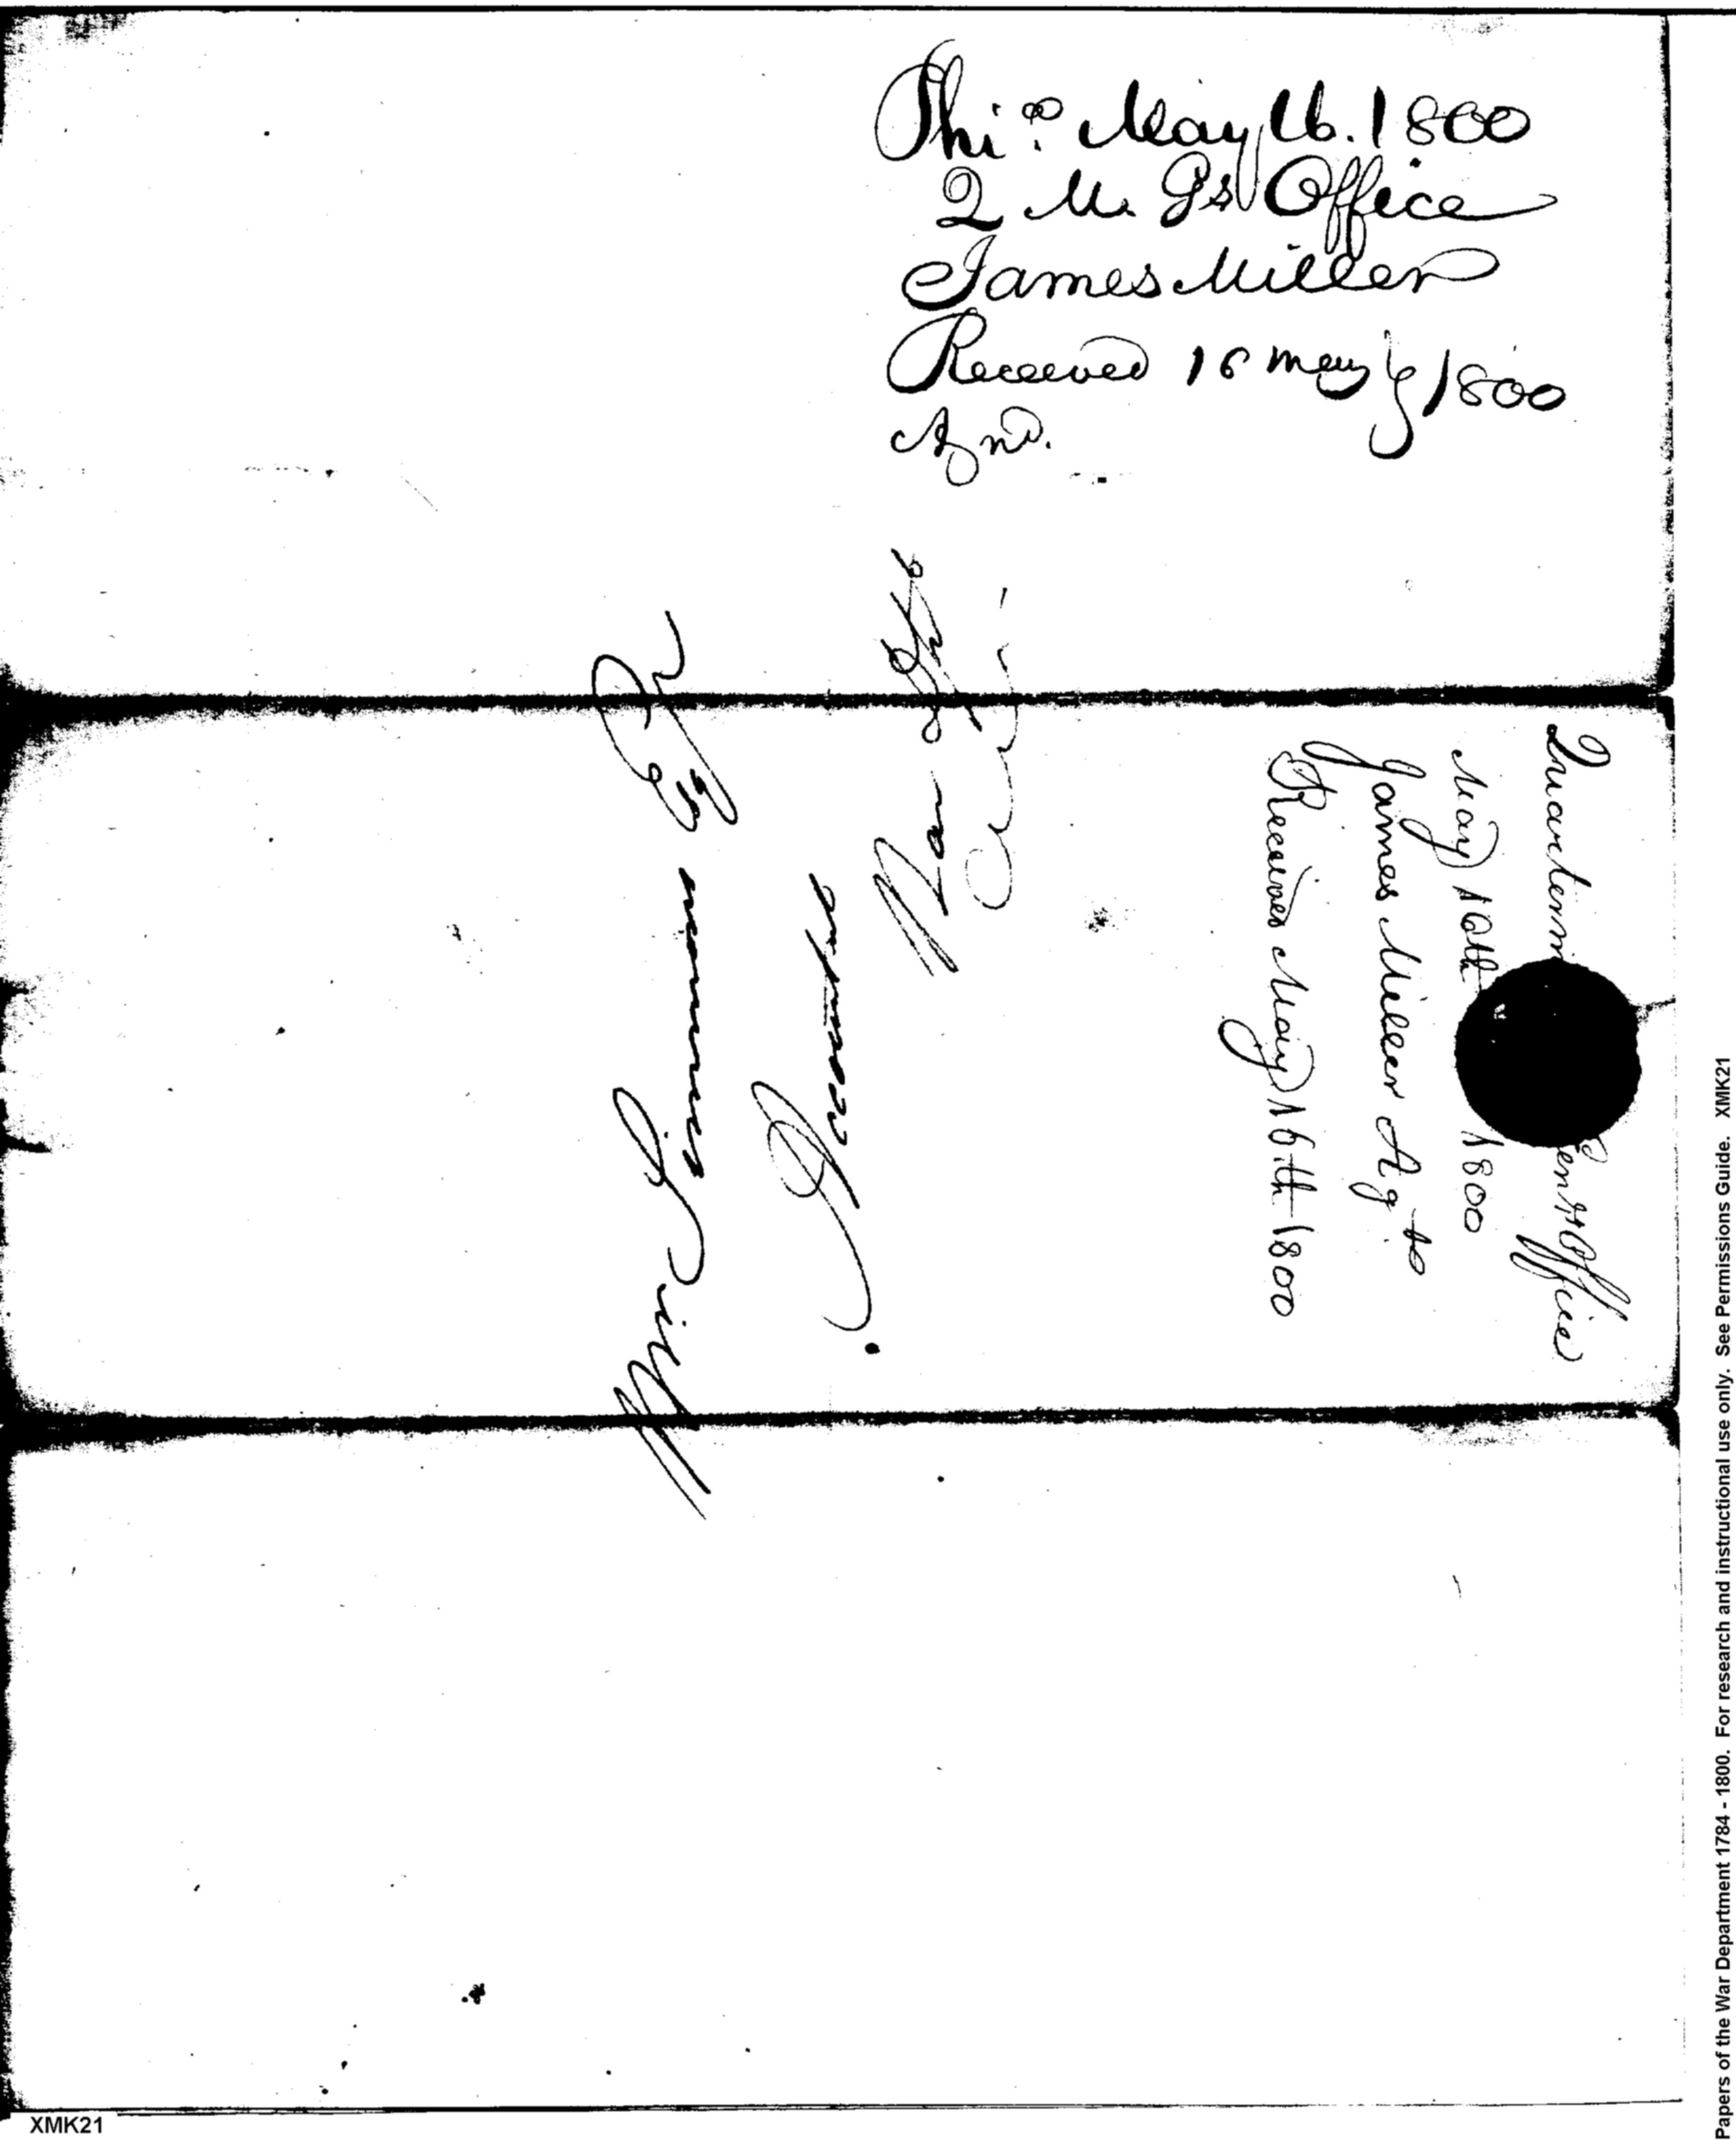 Phi.ª May 16. 1800
Q M. Gs Office
James Miller
Received 16 may 1800
Wm Simmons Esqr
Accountant
War
Quarterm en.ls Office
May 16th 1800
James Miller Ag.
Received May 16.th 1800
Papers of the War Department 1784 - 1800. For research and instructional use only. See Permissions Guide. XMK21
XMK21